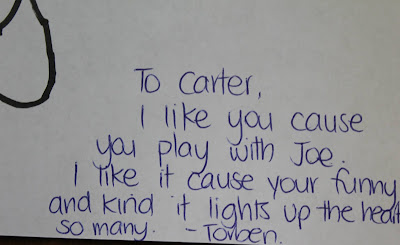 To Carter,
I like you cause
you play with Joe.
I like it cause your funny
and kind it lights up the heart
so many. - Torben.